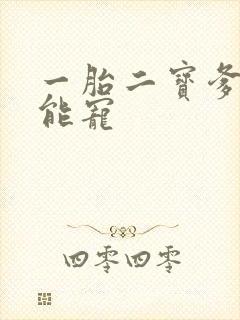 一胎二寳爹
能寵
四零四零